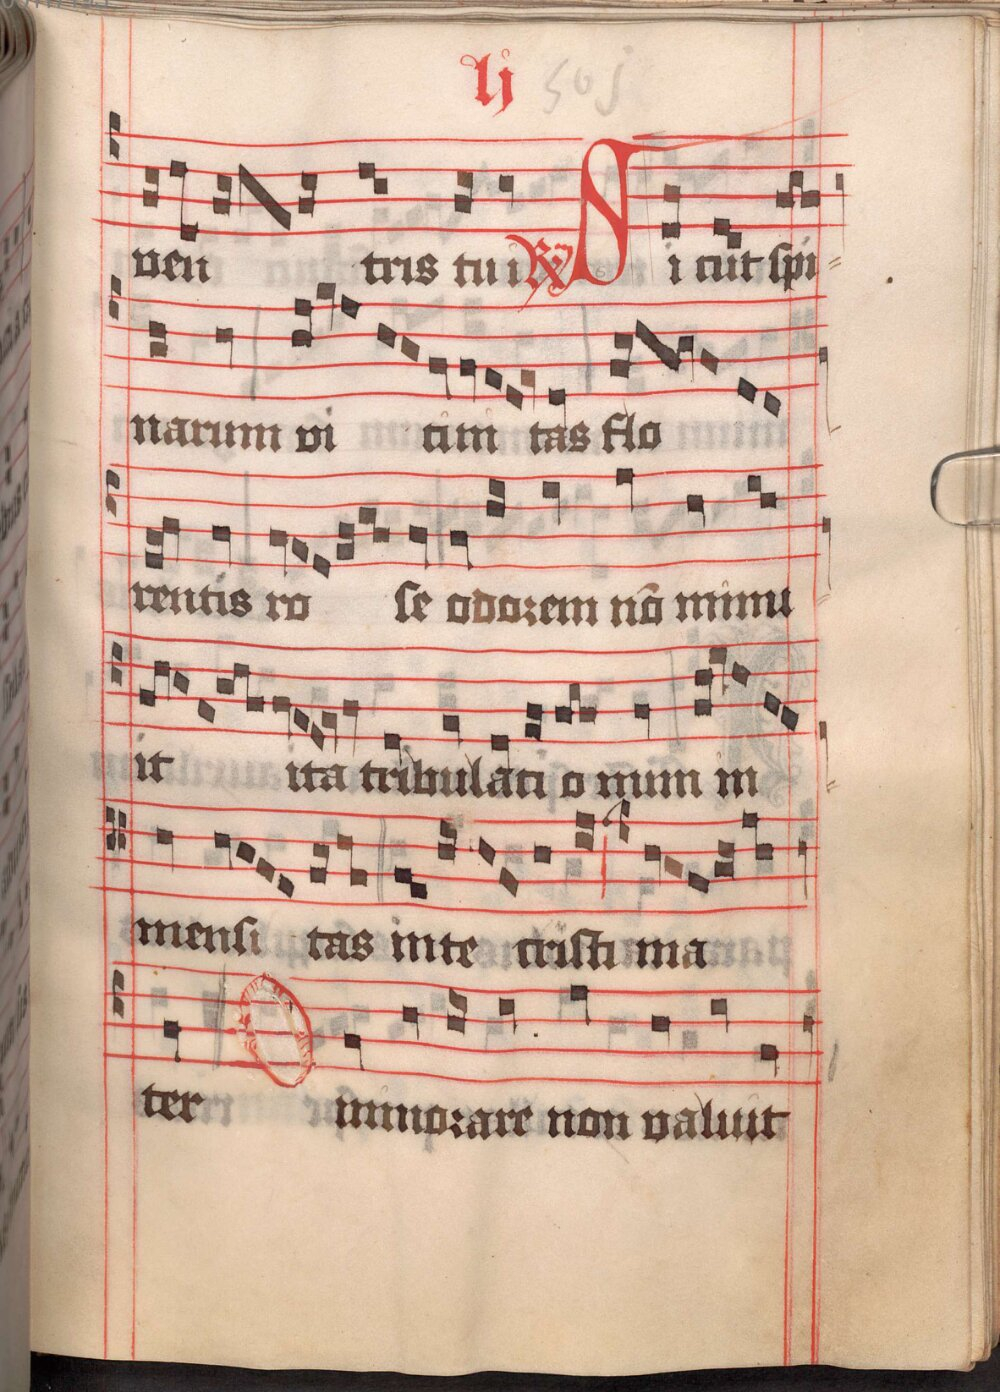 lj 50j
ven tris tu i R Si cut spi
narum vi cini tas flo
rentis ro se odorem nō minu
it ita tribulati o num in
mensi tas in te cristi ma
ter minorare non valuit